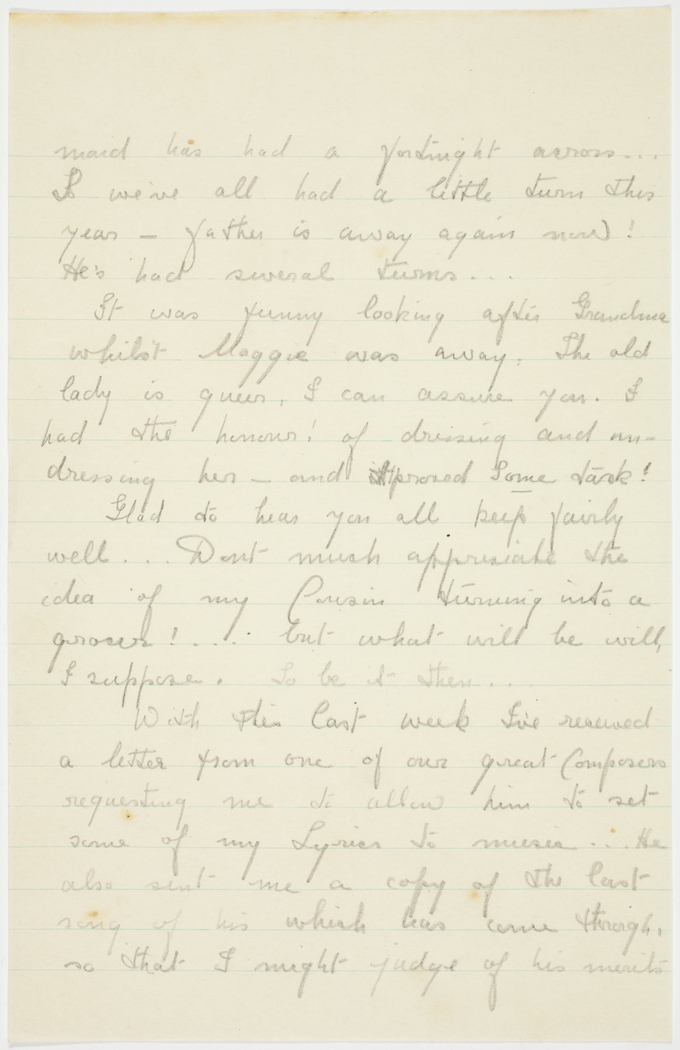 maid has had a fortnight across...
So we've all had a little turn this
year — father is away again now)!
He's had several turns...
It was funny looking after Grandma
whilst Maggie was away. The old
lady is queer, I can assure you. I
had the honour! of dressing and un-
dressing her — and it proved some task!
Glad to hear you all keep fairly
well.... Dont much appresiate the
idea of my Cousin turning into a
grocer!..... but what will be will,
I suppose. So be it then...
With this last week I've received
a letter from one of our great Composers
requesting me to allow him to set
some of my Lyrics to music... He
also sent me a copy of the last
song of his which has come through,
so that I might judge of his merits